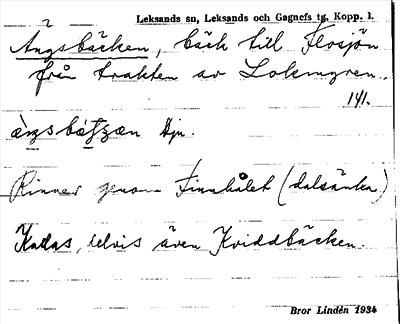 Leksands sn, Leksands och Gagnefs tg, Kopp. l.
Ängsbäcken, bäck till Flosjön
från trakten av Lokmyren.
141.
Djn.
Rinner genom Finnhålet (dalsänka)
Kallas, delvis även Kviddbäcken.
Bror Lindén 1934